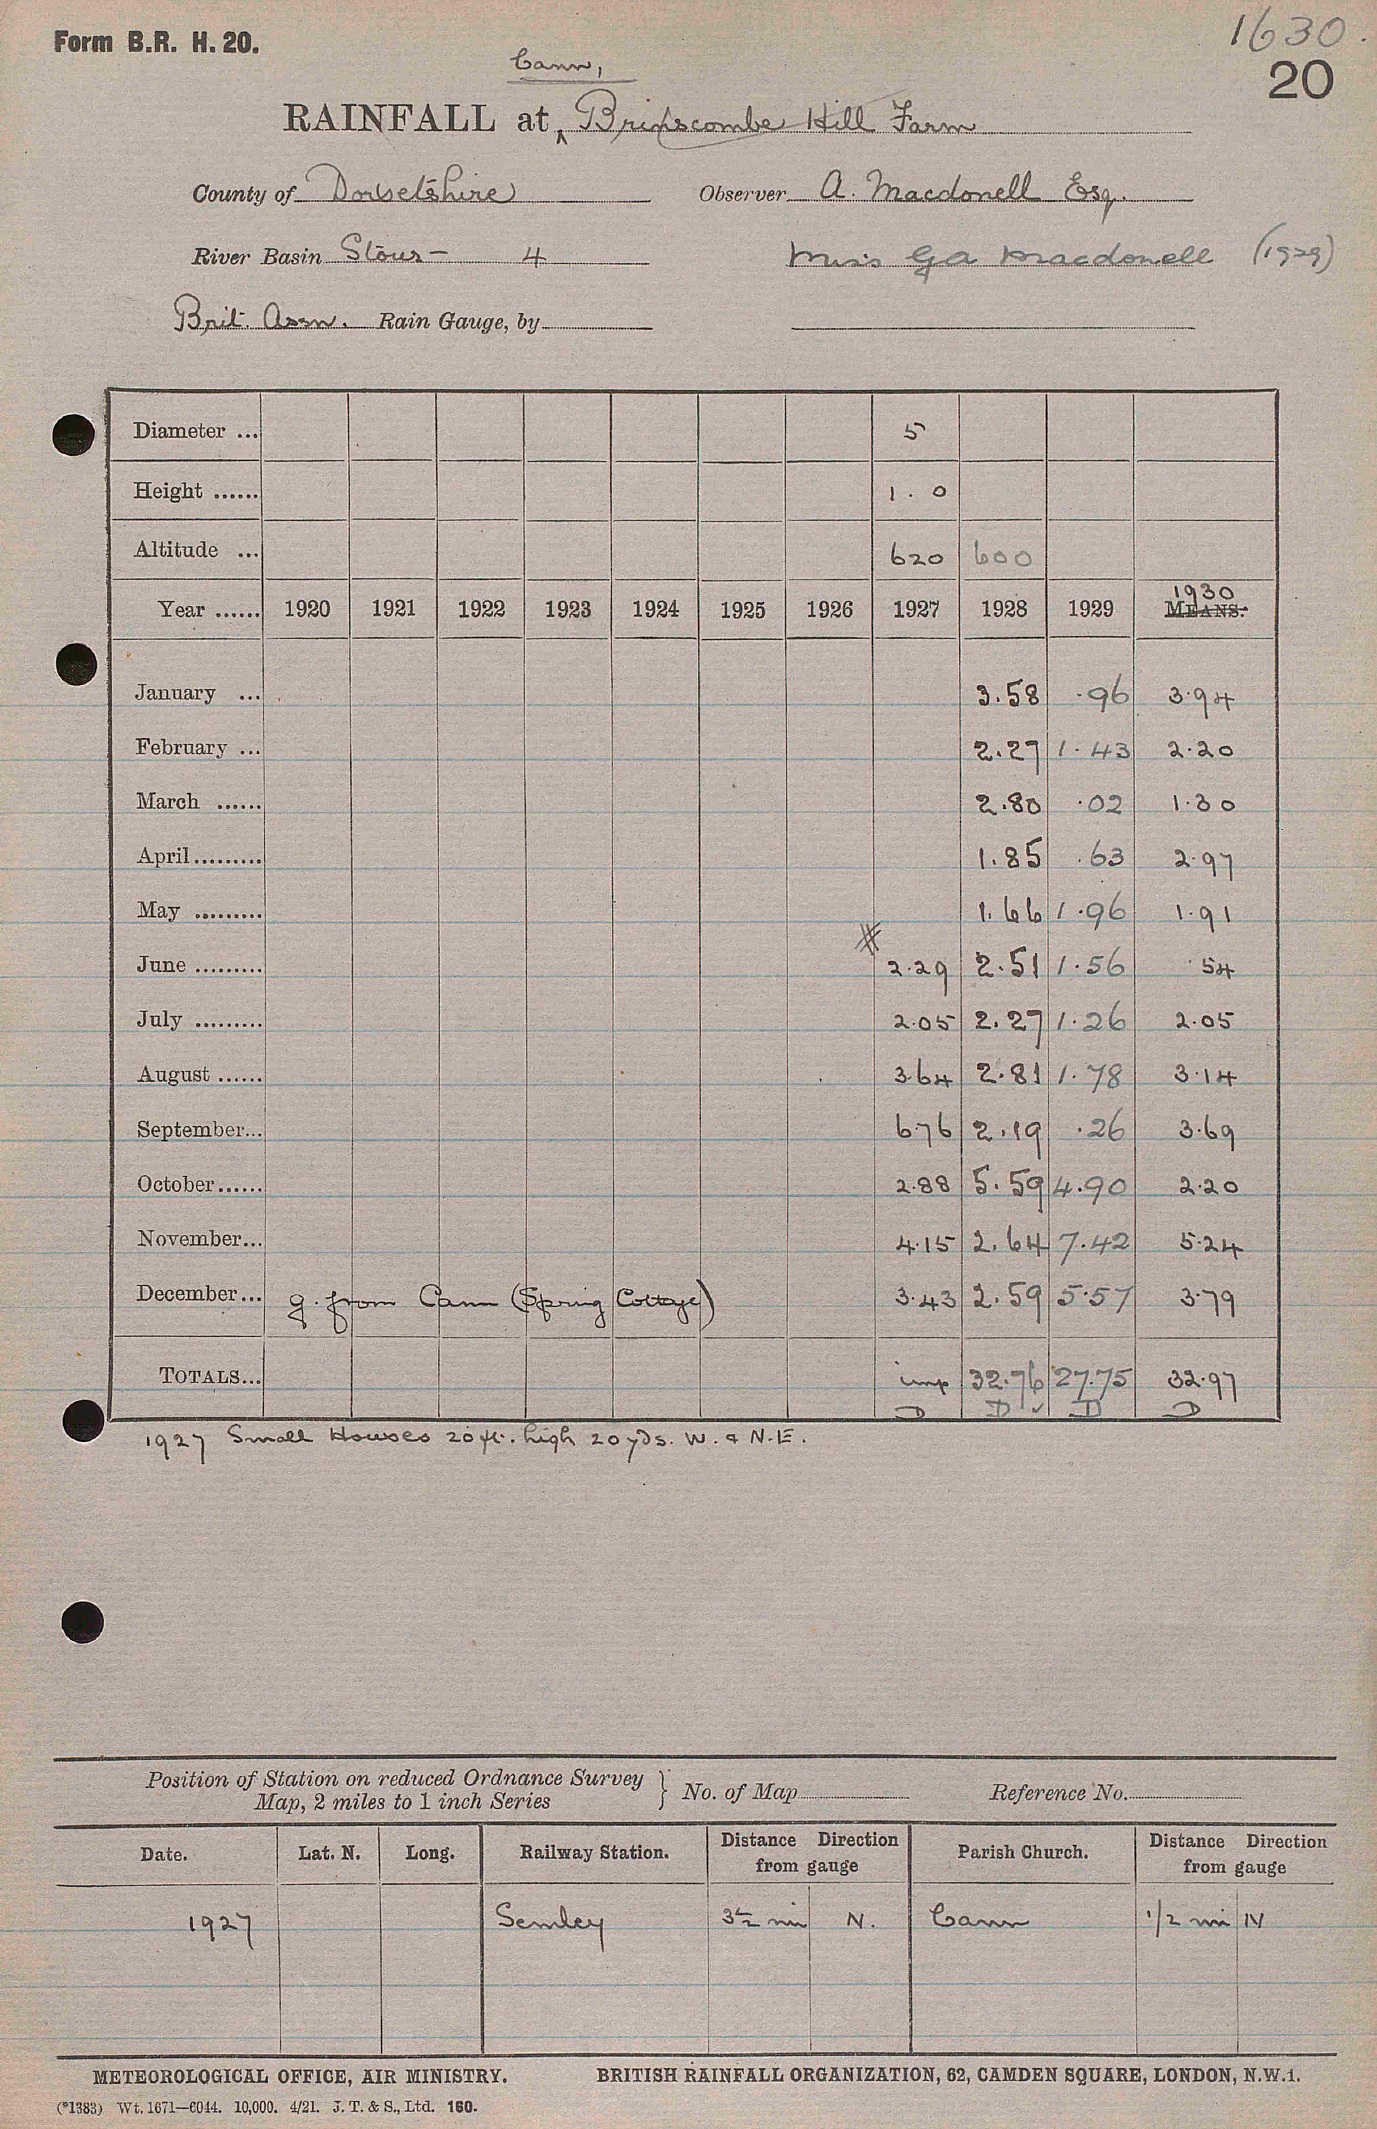 Form B.R. H. 20.
1630.
20
Cann,
RAINFALL at Brinscombe Hill Farm
County of Dorsetshire Observer A. Macdonell Esq.
River Basin Stour - 4 Miss G A Macdonell (1929)
Brit. Assn. Rain Gauge, by
Diameter ... 5
Height ...... 1.0
Altitude ... 620 600
1930
Year ...... 1920 1921 1922 1923 1924 1925 1926 1927 1928 1929 MEANS.
January ... 3.58 .96 3.94
February ... 2.27 1.43 2.20
March ...... 2.80 .02 1.30
April......... 1.85 .63 2.97
May ......... 1.66 1.96 1.91
June ......... # 2.29 2.51 1.56 .54
July ......... 2.05 2.27 1.26 2.05
August ...... 3.64 2.81 1.78 3.14
September... 6.76 2.19 .26 3.69
October...... 2.88 5.59 4.90 2.20
November... 4.15 2.64 7.42 5.24
December... g. from Cann (Spring Cottage) 3.43 2.59 5.57 3.79
TOTALS... imp 32.76 27.75 32.97
D D ✓ D D
1927 Small Houses 20 ft. high 20 yds. W. & N.E.
Position of Station on reduced Ordnance Survey
Map, 2 miles to 1 inch Series } No. of Map Reference No.
Date. Lat. N. Long. Railway Station. Distance Direction from gauge Parish Church. Distance Direction from gauge
1927 Semley 3½ mi N. Cann 1/2 mi N
METEOROLOGICAL OFFICE, AIR MINISTRY. BRITISH RAINFALL ORGANIZATION, 62, CAMDEN SQUARE, LONDON, N.W.1.
(*1383) Wt. 1671—6044. 10,000. 4/21. J. T. & S., Ltd. 160.